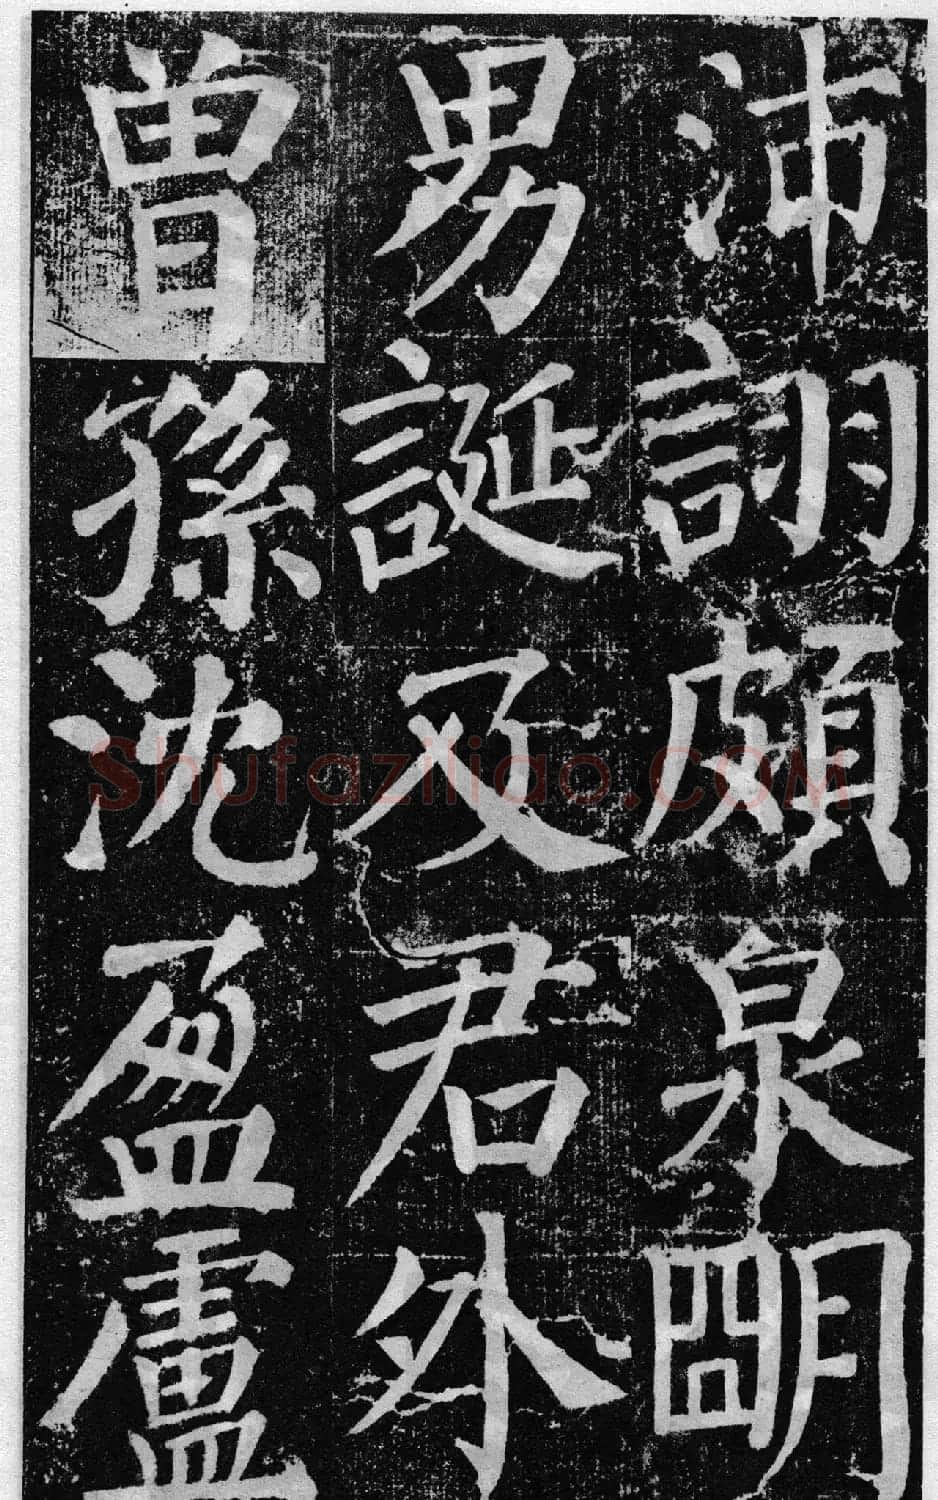 沛詡頗泉明
男誕及君外
曾孫沈盈盧
Shufaziliao.COM